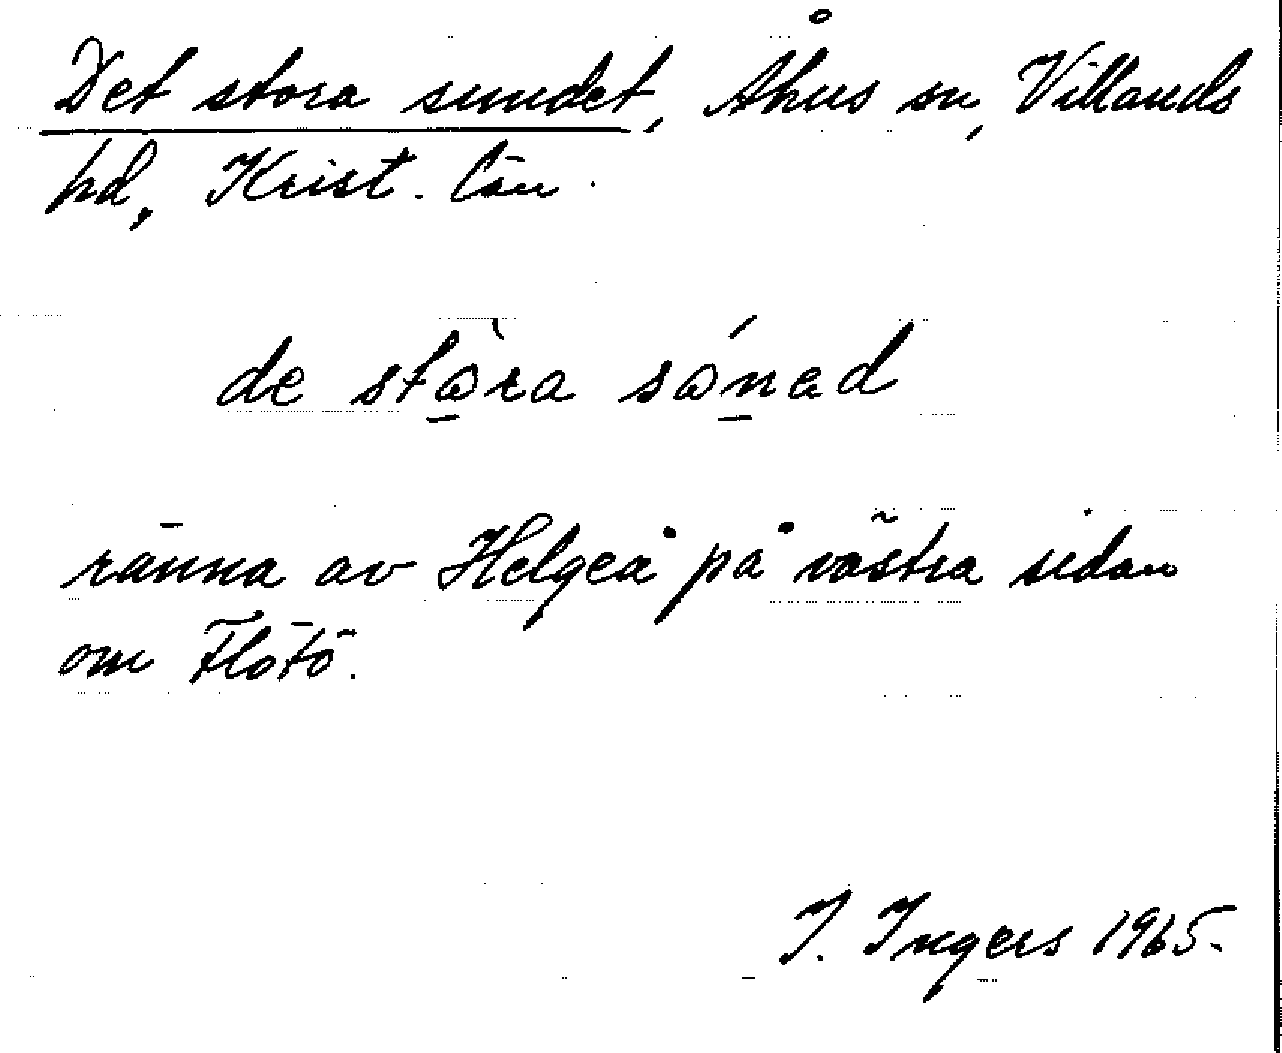 Det stora sundet, Åhus sn, Villands
hd, Krist. län.
de stòra sónad
ränna av Helgeå på västra sidan
om Flötö.
I. Ingers 1965.